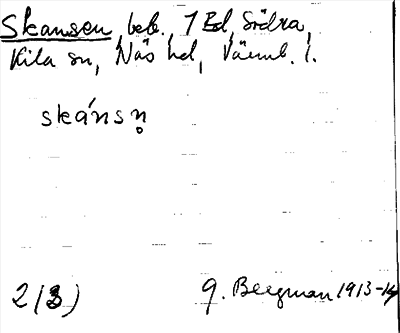 Skansen, beb., 1 Ed, Södra,
Kila sn, Näs hd, Värml. l.
skánsn̥
2(3)
G. Bergman 1913-14